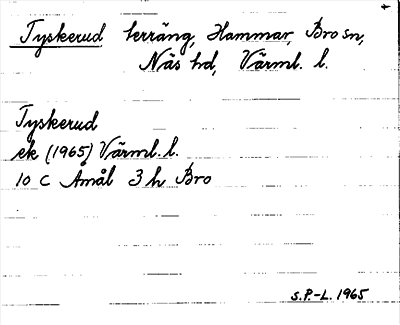 Tyskerud terräng, Hammar, Bro sn,
Näs hd, Värml. l.
Tyskerud
ek (1965) Värml. l.
10 C Åmål 3 h Bro
S.P.-L. 1965